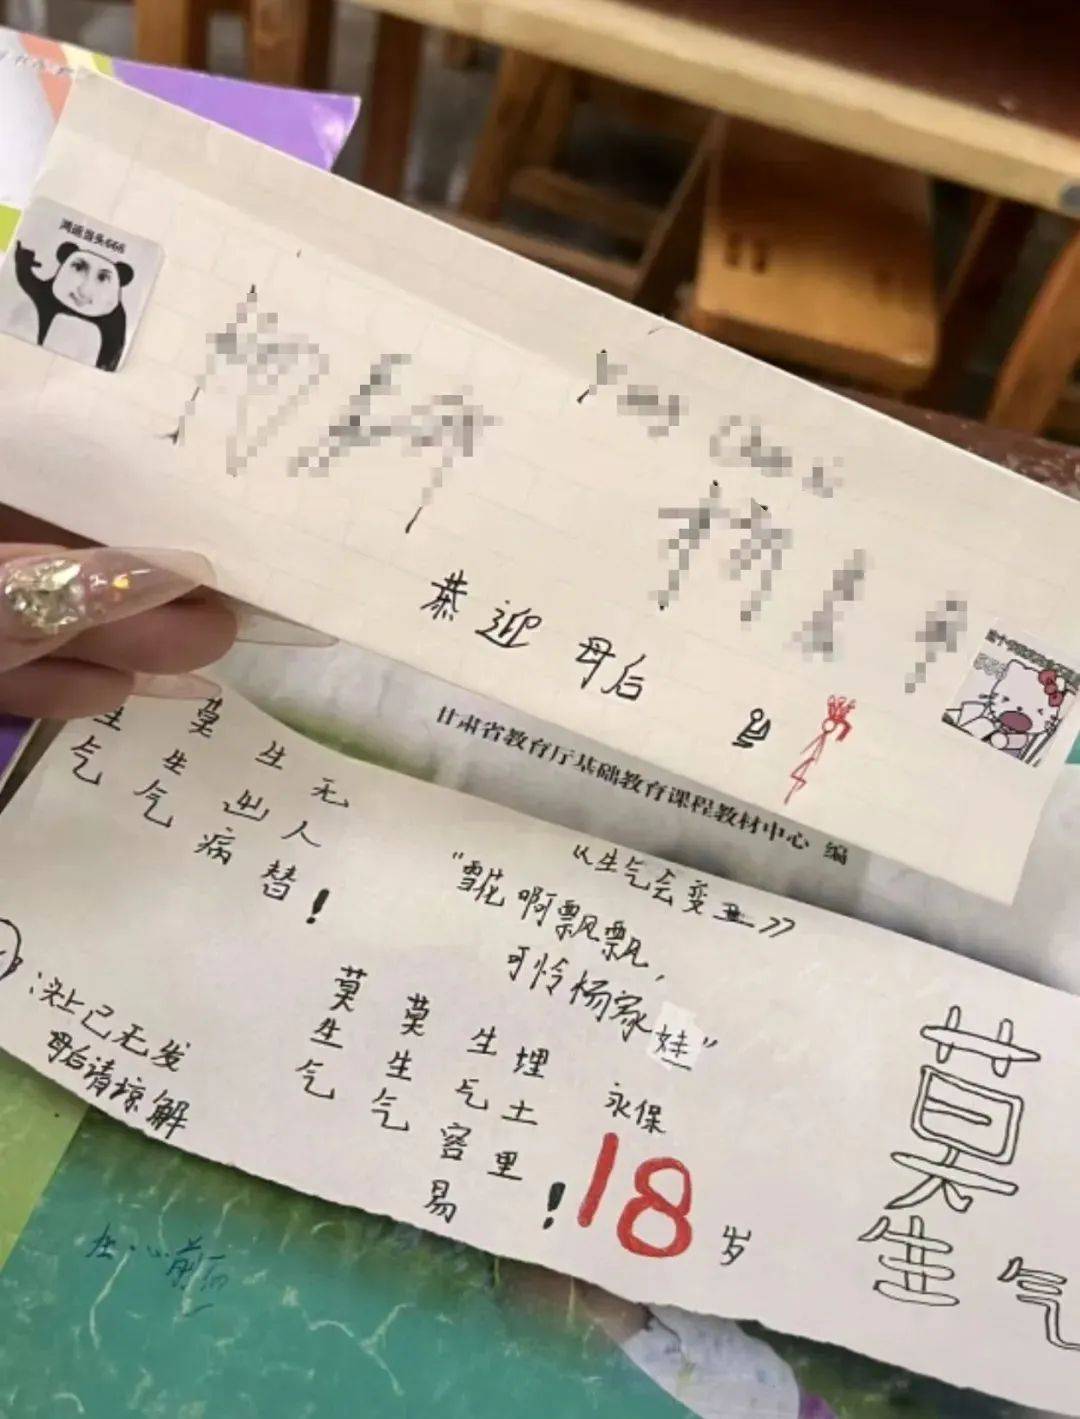 鸿运当头666
恭迎 母后
甘肃省教育厅基础教育课程教材中心 编
生气
莫生气
生出病
无人替!
《生气会变丑》
“雪花啊飘飘,
可怜杨家娃”
头上已无发
母后请谅解
莫生气
莫生气
生气容易
埋土里!
永保
18岁
莫生气